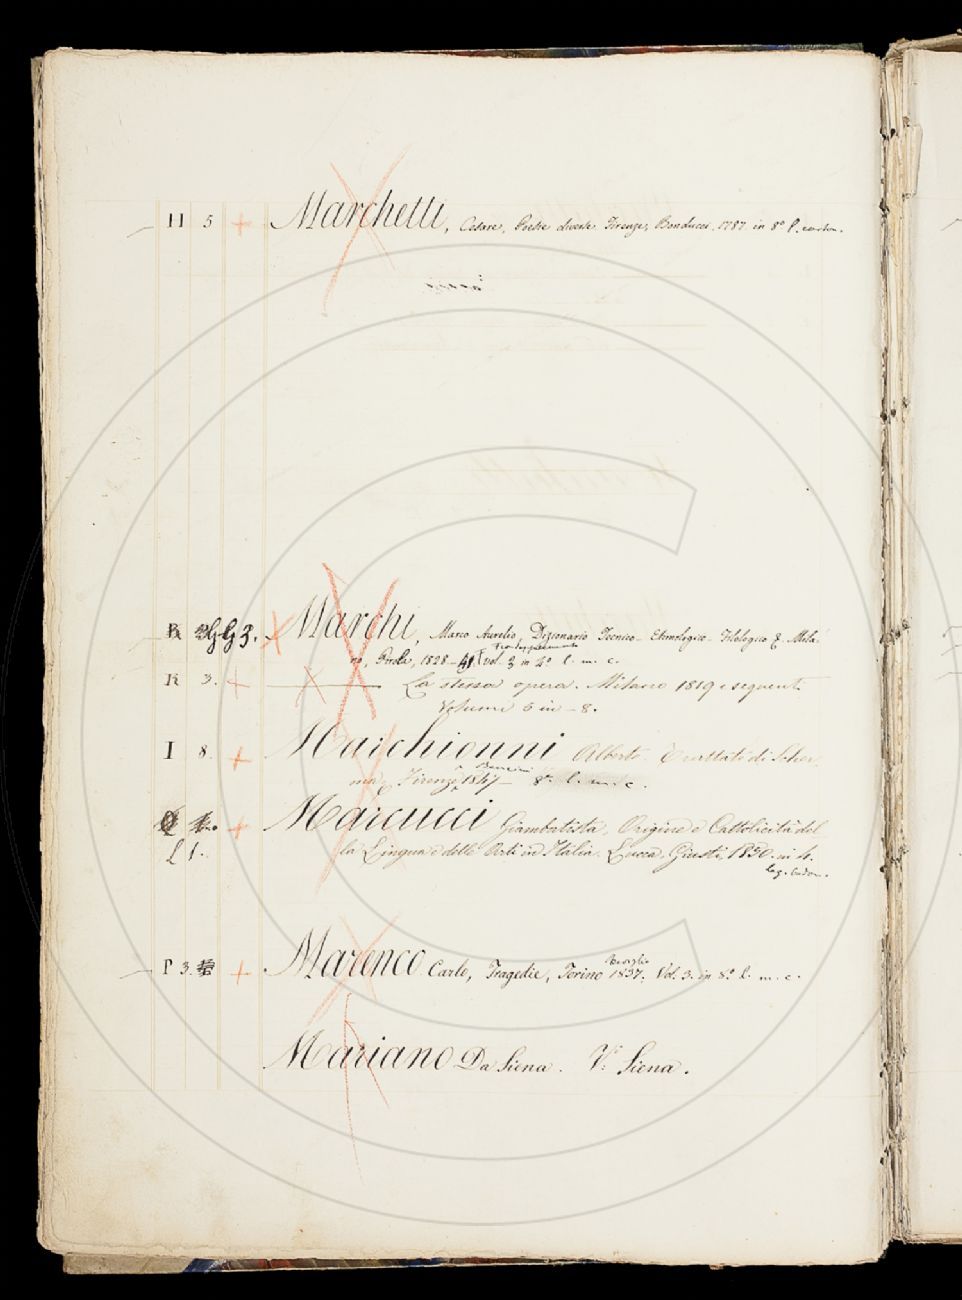 H 5 + Marchetti, Cesare, Poesie diverse Firenze, Bonducci, 1787 in 8º p. carton.
R G 3. Marchi, Marco Aurelio, Dizionario Tecnico-Etimologico-Filologico &. Mila=
Frondispizi
no, Pirola, 1828-41. vol. 3 in 4º l. m. c.
R 3. + La stessa opera. Milano 1819 e seguenti
Volumi 5 in-8.
I 8. + Marchionni Alberto. Trattato di Scher
Bencini
ma, Firenze 1847- 8º l. m. c.
+ Marcucci Giambatista, Origine e Cattolicità del
L 1. la Lingua e delle Arti in Italia. Lucca, Giusti, 1830. in 4.
leg. cadon.
Baviglio
P 3. + Marenco Carlo, Tragedie, Torino 1837. Vol. 3. in 8º l. m. c.
Mariano Da Siena. V: Siena.